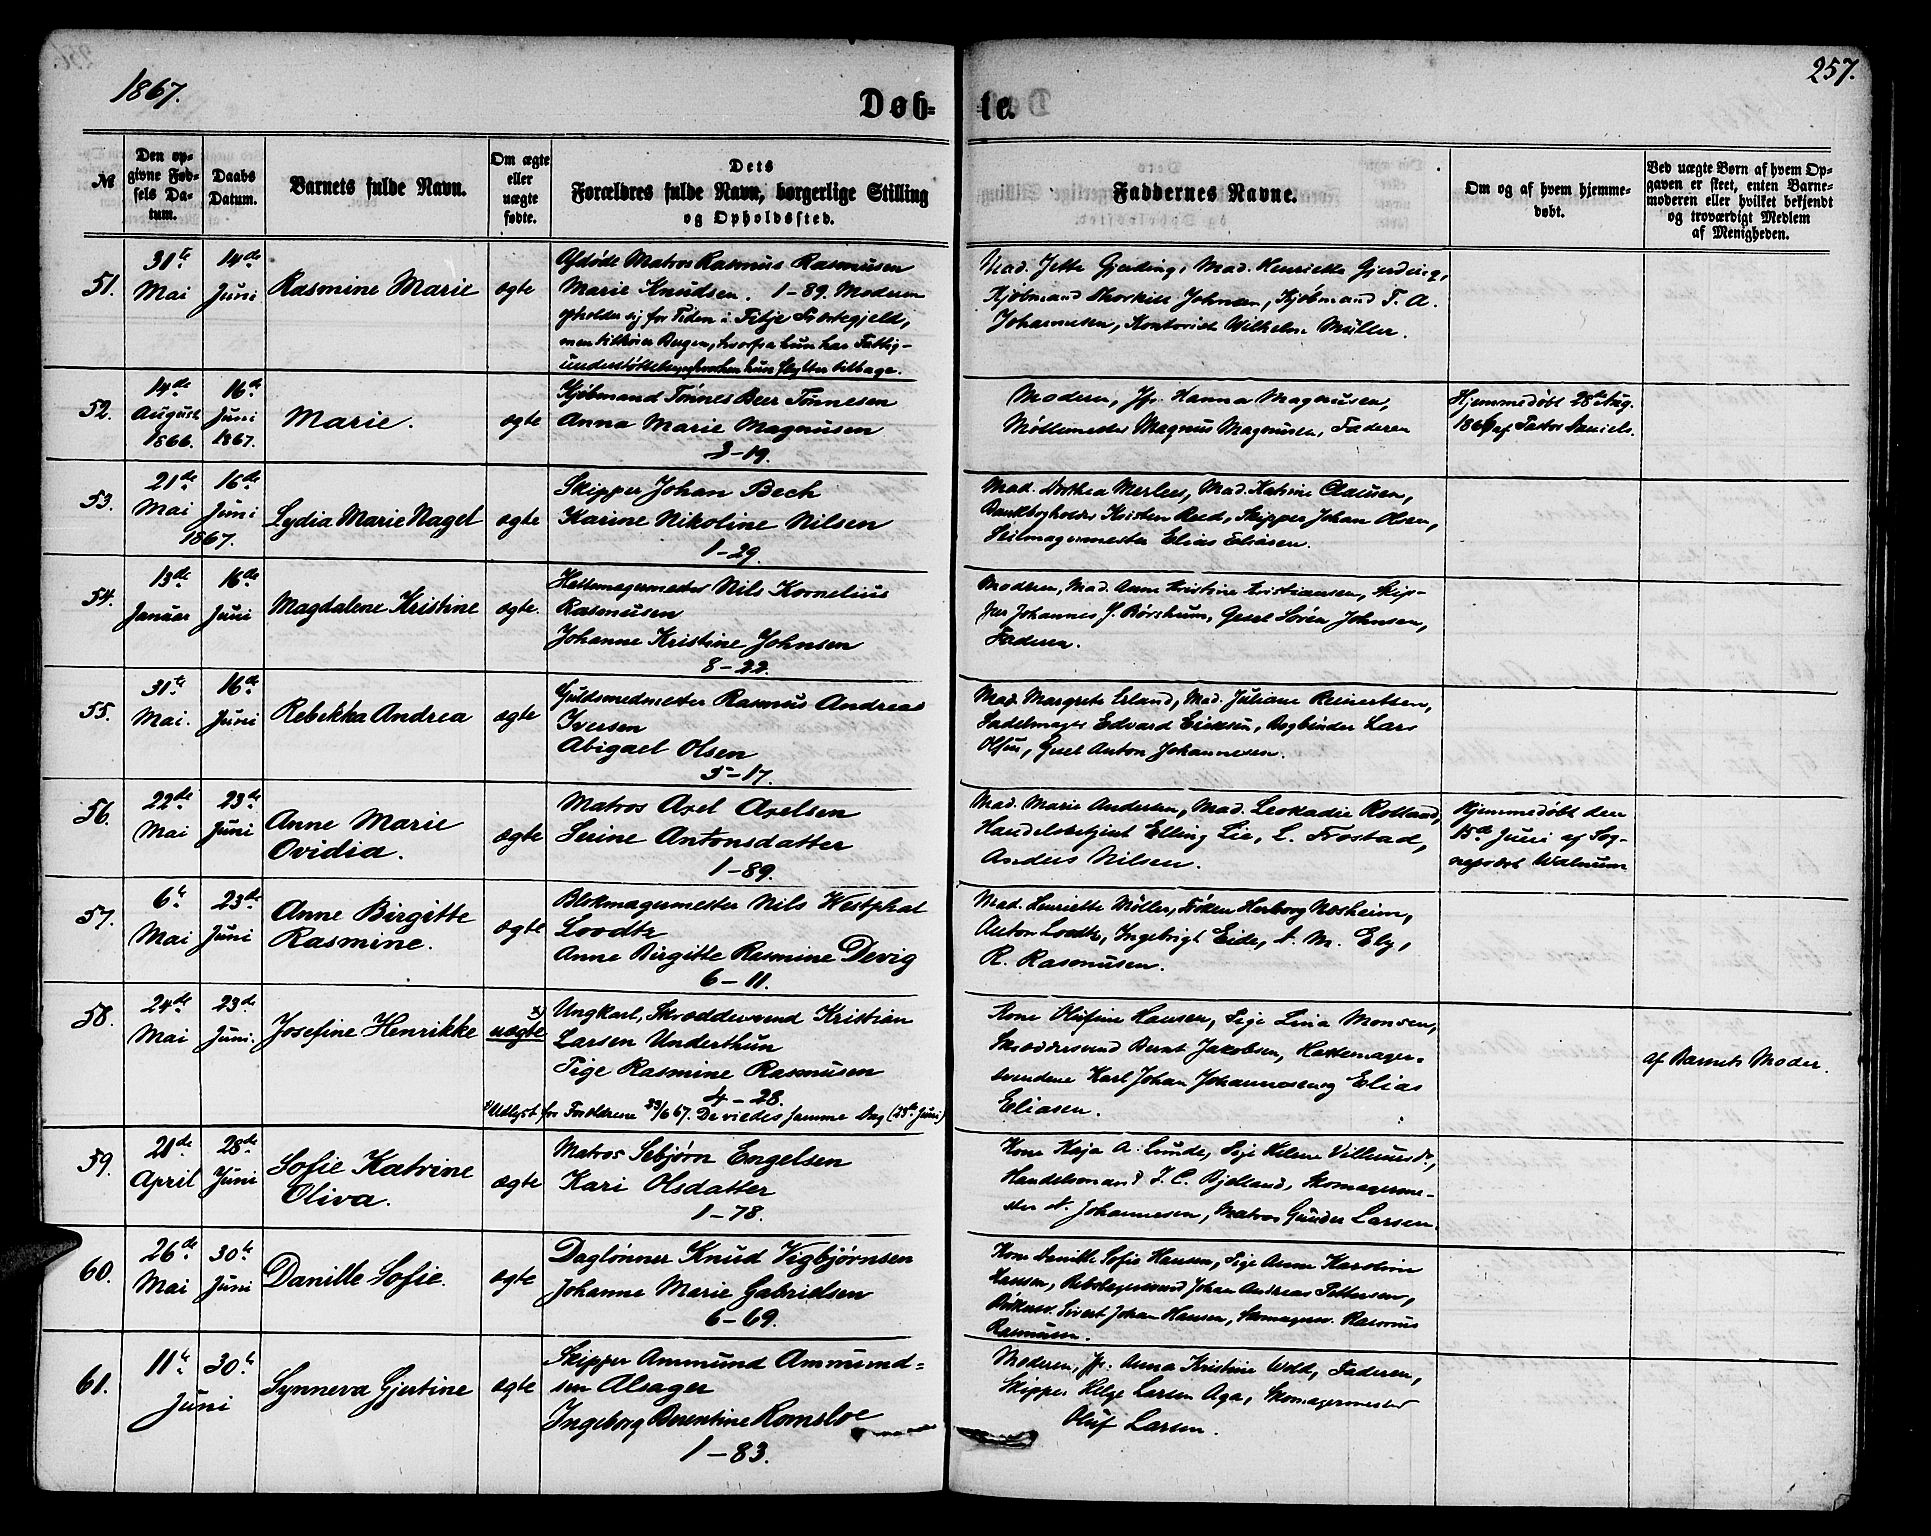 1867.
Døb-
te.
257.
№
Den op-
givne Fød-
sels Da-
tum.
Daabs
Datum.
Barnets fulde Navn.
Om ægte
eller
uægte
fødte.
Dets
Forældres fulde Navn, borgerlige Stilling
og Opholdssted.
Faddernes Navne.
Om og af hvem hjemme-
døbt.
Ved uægte Børn af hvem Op-
gaven er skeet, enten Barne-
moderen eller hvilket bekjendt
og troværdigt Medlem
af Menigheden.
51.
31te
Mai
14de
Juni
Rasmine Marie
ægte
Afdøde Matros Rasmus Rasmusen
Marie Knudsen. 1-89. Moderen
opholder sig for Tiden i Fitje Præstegjeld,
men tilhører Bergen, hvorfra hun har Fattig-
understøttelse, hun flytter tilbage.
Mad. Jette Gjerding, Mad. Henriette Gjerding,
Kjøbmand Thorkild Johnsen, Kjøbmand T. A.
Johannesen, Kontorist Wilhelm Müller.
52.
14de
August
1866.
16de
Juni
1867.
Marie.
ægte
Kjøbmand Tønnes Beer Tønnesen
Anna Marie Magnusen
3-19.
Moderen, Jfr. Hanna Magnusen,
Møllemester Magnus Magnusen, Faderen
Hjemmedøbt 28de Aug.
1866 af Pastor Daniels.
53.
21de
Mai
16de
Juni
1867.
Lydia Marie Nagel
ægte
Skipper Johan Bech
Karine Nikoline Nilsen
1-29.
Mad. Dorthea Merlees, Mad. Katrine Clausen,
Bankbogholder Kristen Reed, Skipper Johan Olsen,
Seilmagermester Elias Eliasen.
54.
13de
Januar
16de
Juni
Magdalene Kristine
ægte.
Hattemagermester Nils Kornelius
Rasmusen
Johanne Kristine Johnsen
8-22.
Moderen, Mad. Anne Kristine Kristiansen, Skip-
per Johannes J. Børsheim, Gesel Søren Johnsen,
Faderen.
55.
31te
Mai.
16de
Juni
Rebekka Andrea
ægte
Guldsmedmester Rasmus Andreas
Iversen
Abigael Olsen
5-17.
Mad. Margrete Erland, Mad. Juliane Reinertsen,
Sadelmager Edvard Eriksen, Bogbinder Lars
Olsen, Gesel Anton Johannesen.
56.
22de
Mai
23de
Juni
Anne Marie
Ovidia.
ægte
Matros Axel Axelsen
Serine Antonsdatter
1-89.
Mad. Marie Andersen, Mad. Leokadie Rolland,
Handelsbetjent Elling Lie, L. Frostad,
Anders Nilsen.
Hjemmedøbt den
15de Juni af Sog-
neprest Walnum
57.
6te
Mai
23de
Juni
Anne Birgitte
Rasmine.
ægte
Blokmagermester Nils Westphal
Loodtz
Anne Birgitte Rasmine Devig
6-11.
Mad. Henriette Møller, Frøken Herborg Næsheim,
Anton Loodtz, Ingebrigt Eide, A. M. Ely,
R. Rasmusen.
58.
24de
Mai
23de
Juni.
Josefine Henrikke
x)
uægte
Ungkarl, Skræddersvend Kristian
Larsen Underthun
Pige Rasmine Rasmusen
4-28.
x) Udlyst for Forældrene 23/6 67. De viedes samme Dag (23de Juni)
Kone Olufine Hansen, Pige Lina Monsen,
Skræddersvend Bernt Jakobsen, Hattemager-
svendene Karl Johan Johannesen og Elias
Eliasen.
af Barnets Moder.
59.
21de
April
28de
Juni
Sofie Katrine
Oliva.
ægte
Matros Sebjørn Engelsen
Kari Olsdatter
1-78.
Kone Kaja A. Lunde, Pige Helene Villumsdr.,
Handelsmand J. C. Bjelland, Skomagerme-
ster A. Johannesen, Matros Gunder Larsen
60.
26de
Mai
30te
Juni
Danille Sofie.
ægte
Dagløнner Knud Vigbjørnsen
Johanne Marie Gabrielsen
6-69.
Kone Danille Sofie Hansen, Pige Anne Karoline
Hansen, Rebslagersvend Johan Andreas Pettersen,
Bødkersv. Sivert Johan Hansen, Skomagersv. Rasmus
Rasmusen.
61.
11te
30te
Juni
Synneva Gjertine
ægte
Skipper Ammund Ammund-
sen Alsager
Ingeborg Berentine Romsloe
1-83.
Moderen, Jfr. Anna Kristine Wold, Faderen,
Skipper Helge Larsen Aga, Skomagermester
Oluf Larsen.